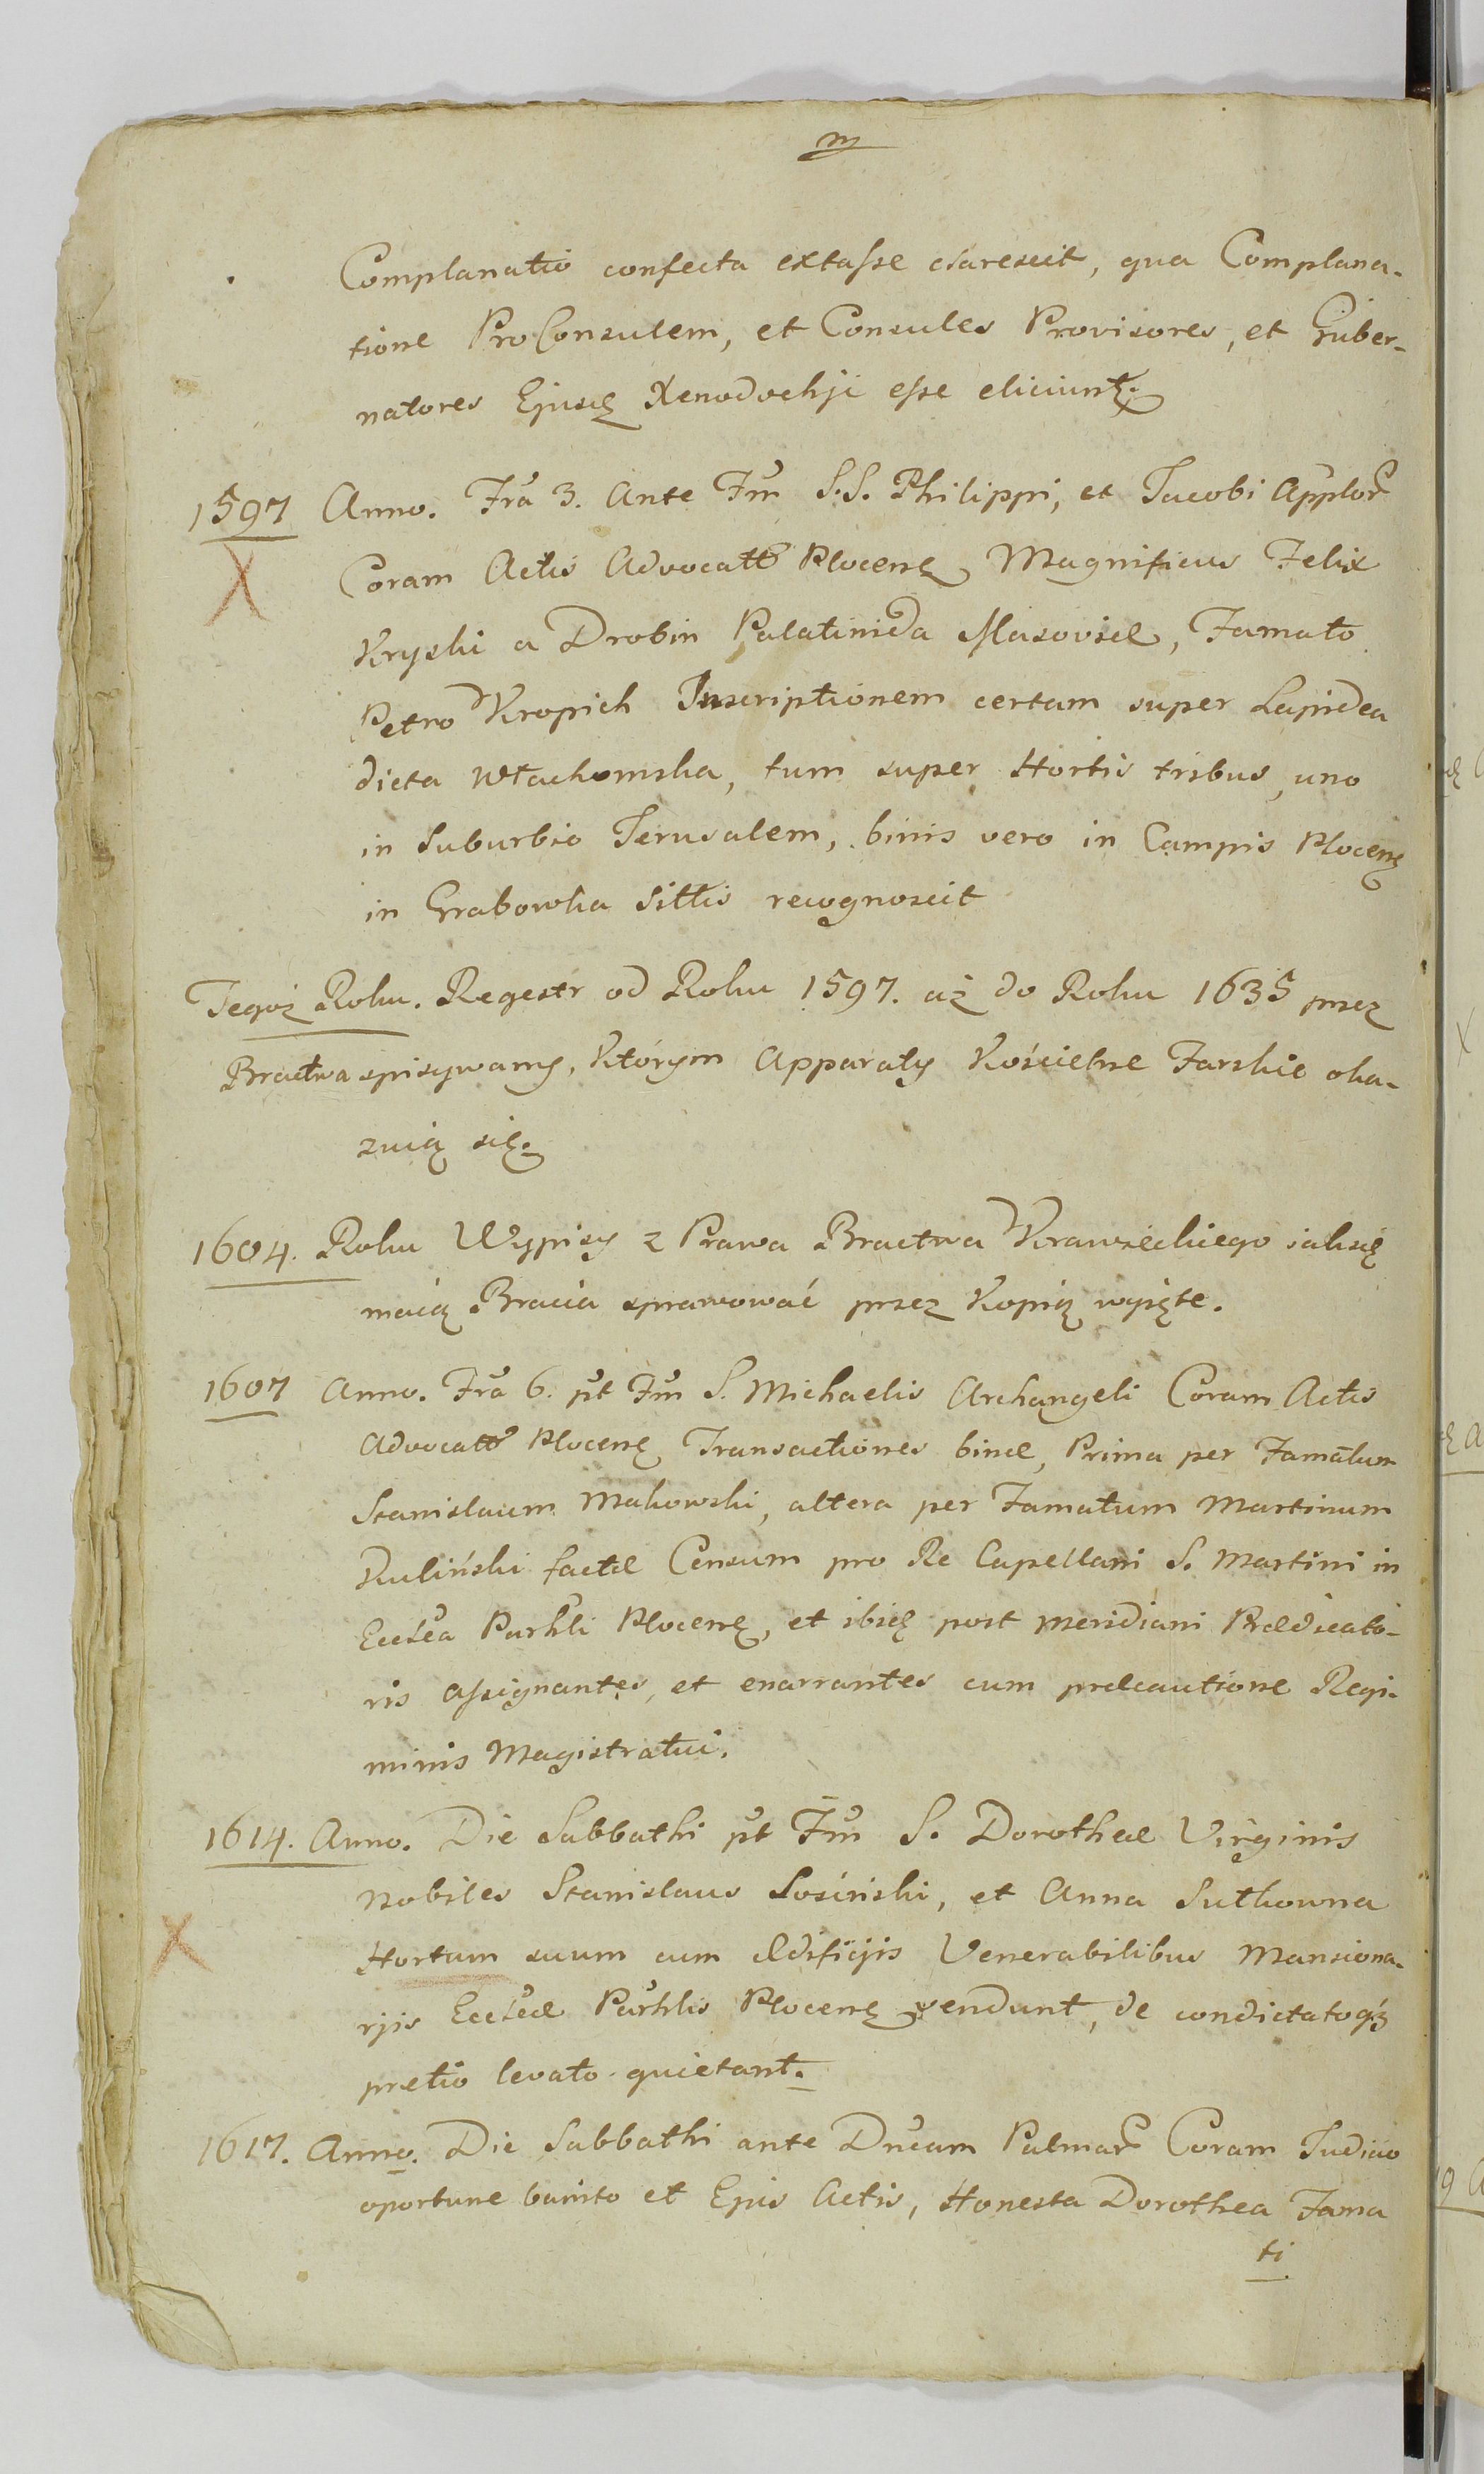 Complanatio confecta extasse clarescit, qua Complana-
tione ProConsulem, et Consules Provisores, et Guber-
natores Ejusdę Xenodochji esse eliciuntę.
1597 Anno. Fra 3. Ante Fm S.S. Philippi, et Jacobi Applor
Coram Actis Advocatt Plocenę Magnificus Felix
Kryski a Drobin Palatinida Masoviæ, Famato
Petro Kropich Inscriptionem certam super Lapidea
dicta Włachomska, tum super Hortis tribus, uno
in Suburbio Jerusalem, binis vero in Campis Plocenę
in Grabowka sittis recognoscit
Tegoż Roku. Regestr od Roku 1597. aż do Roku 1635 przez
Bractwa spisywany, którym Apparaty Kościelne Farskie oka-
zuią się.
1604. Roku Wypisy z Prawa Bractwa Krawieckiego iak się
maią Bracia sprawować przez Kopią wyięte.
1607 Anno. Fra 6. pt Fm S. Michaelis Archangeli Coram Actis
Advocatt Plocenę Transactiones binæ, Prima per Famatum
Stanislaum Makowski, altera per Famatum Martinum
Kuliński factæ Censum pro Re Capellani S. Martini in
Ecclea Parhli Plocenę, et ibidę post meridiani Prædicato-
ris assignantes, et enarrantes cum præcautione Regi-
minis Magistratui.
1614. Anno. Die Sabbathi pt Fm S. Dorotheæ Virginis
Nobiles Stanislaus Łosiński, et Anna Sutkowna
Hortum suum cum ædificijs Venerabilibus Mansiona-
rjis Eccleæ Parhlis Plocenę vendunt, de condictatoqz
pretio levato quietant.
1617. Anno. Die Sabbathi ante Dncam Palmar Coram Judicio
oportune banito et Ejus Actis, Honesta Dorothea Fama
ti